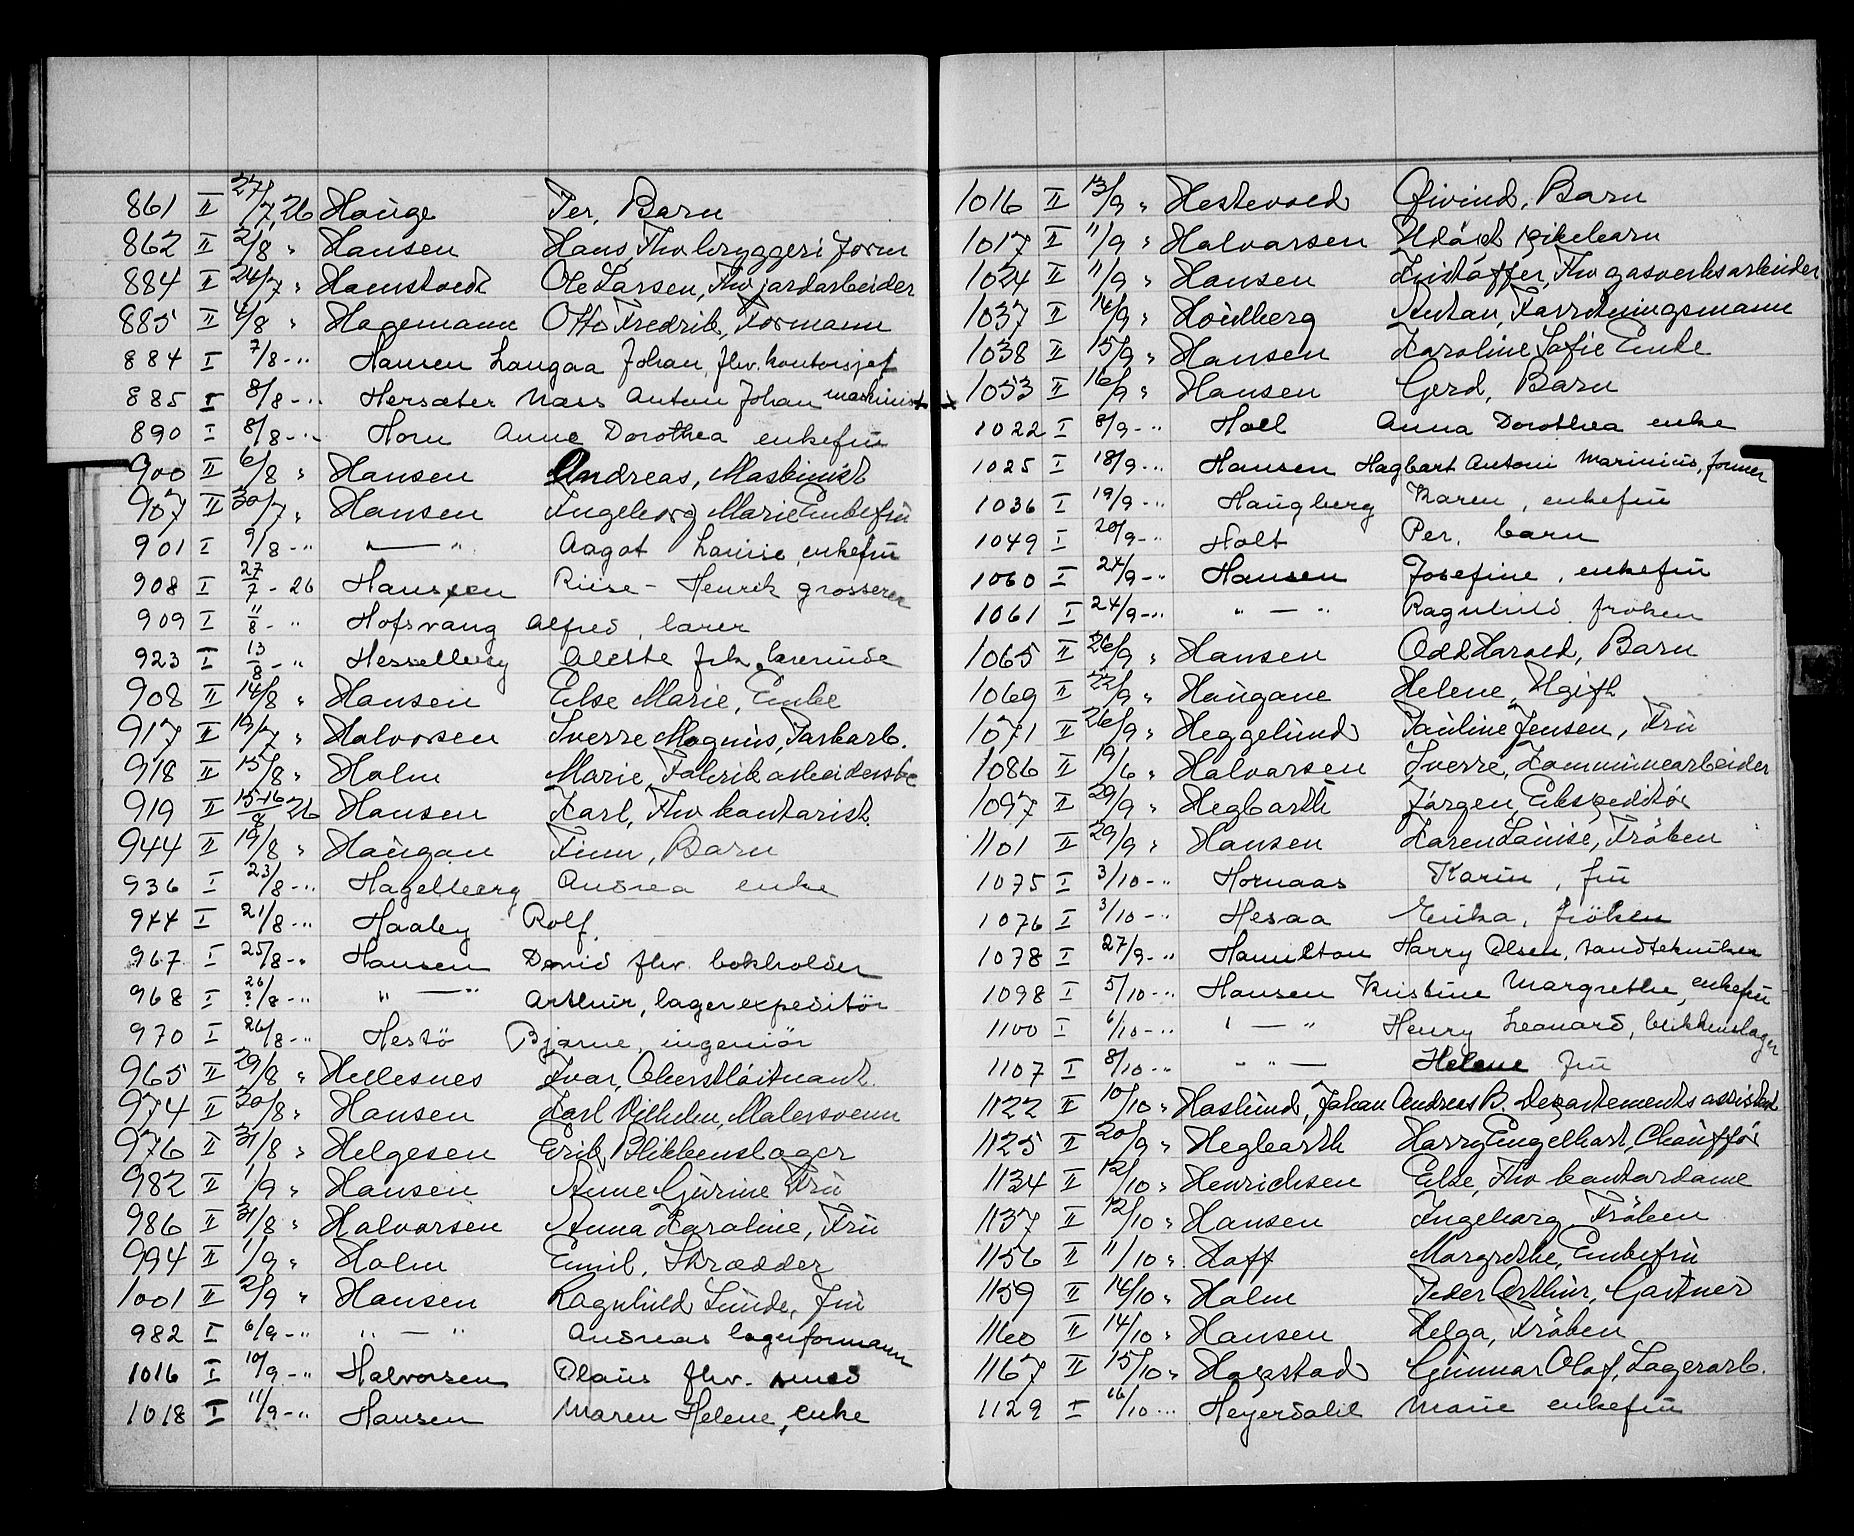 861 II 27/7 26 Hauge Per, Barn
862 II 2/8 " Hansen Hans, Fhv bryggeriform
884 II 24/7 " Hamstvedt Ole Larsen, Fhv jordarbeider
885 II 4/8 " Hagemann Otto Fredrik, Formann
884 I 7/8 - " Hansen Langaa Johan, fhv. kontorsjef
885 I 8/8 - " Hersæter Næss Anton Johan maskinist
890 I 8/8 - " Horn Anne Dorothea enkefru
900 II 6/8 " Hansen Andreas, Maskinist
907 II 30/7 " Hansen Ingeborg Marie Enkefru
901 I 9/8 - " " — " Aagot Louise, enkefru
908 I 27/7 - 26 Hanssen Riise - Henrik grosserer
909 I 11/8 - " Hofsvang Alfred, lærer
923 I 13/8 - " Hesselberg Alette frk. lærerinde
908 II 14/8 " Hansen Else Marie, Enke
917 II 19/7 " Halvorsen Sverre Magnus, Parkarb.
918 II 15/8 " Holm Marie, Fabrikarbeiderske
919 II 15-16/8 26 Hansen Karl, Fhv kontorist.
944 II 19/8 " Haugan Finn, Barn
936 I 23/8 - " Hagelberg Andrea enke
944 I 21/8 - " Haaby Rolf.
967 I 25/8 - " Hansen David fhv. bokholder
968 I 26/8 - " " — " Arthur, lagerexpeditör
970 I 26/8 - " Hestö Bjarne, ingeniör
965 II 29/8 " Hellesnes Ivar, Oberstløitnant.
974 II 30/8 " Hansen Karl Vilhelm, Malersvenn
976 II 31/8 " Helgesen Erik Blikkenslager
982 II 1/9 " Hansen Anne Gurine Fru
986 II 31/8 " Halvorsen Anna Karoline, Fru
994 II 1/9 " Holm Emil, Skrædder
1001 II 2/9 " Hansen Ragnhild Lunde, fru
982 I 6/9 - " " — " Andreas lagerformann
1016 I 10/9 - " Halvorsen Olaus fhv. smed
1018 I 11/9 - " Hansen Maren Helene, enke
1016 II 13/9 " Hestevold Øivind, Barn
1017 II 11/9 " Halvorsen Udöpt pikebarn
1024 II 11/9 " Hansen Kristoffer, Fhv gasverksarbeider
1037 II 14/9 " Høidberg Anton, Forretningsmann
1038 II 15/9 " Hansen Karoline Sofie Enke
1053 II 16/9 " Hansen Gerd, Barn
1022 I 8/9 - " Holl Anna Dorothea enke
1025 I 18/9 - " Hansen Hagbart Antoni Marinius, former
1036 I 19/9 - " Haugberg Karen, enkefru
1049 I 20/9 - " Holt Per, barn
1060 I 24/9 - " Hansen Josefine, enkefru
1061 I 24/9 - " " — " Ragnhild fröken
1065 II 26/9 " Hansen Odd Harold, Barn
1069 II 22/9 " Haugane Helene, Ugift
1071 II 26/9 " Heggelund Pauline Jensen, Fru
1086 II 19/6 " Halvorsen Sverre, Kommunearbeider
1097 II 29/9 " Hegbarth Jörgen, Ekspeditör
1101 II 29/9 " Hansen Karen Louise, Fröken
1075 I 3/10 - " Hornaas Karin, fru
1076 I 3/10 - " Hesaa Erika, fröken
1078 I 27/9 - " Hamilton Harry Olsen, tandtekniker
1098 I 5/10 - " Hansen Kristine Margrethe, enkefru
1100 I 6/10 - " " — " Henry Leonard, blikkenslager
1107 I 8/10 - " " " — Helene fru
1122 II 10/10 " Haslund, Johan Andreas B. Departementsassistent
1125 II 20/9 " Hegbarth Harry Engelhart, Chauffør
1134 II 12/10 " Henrichsen Else, Fhv kontordame
1137 II 12/10 " Hansen Ingeborg, Fröken
1156 II 11/10 " Hoff Margrethe, Enkefru
1159 II 14/10 " Holm Peder Arthur, Gartner
1160 II 14/10 " Hansen Helga, Fröken
1167 II 15/10 " Hagstad Gunnar Olaf, Lagerarb.
1129 I 16/10 - " Heyerdahl Marie enkefru